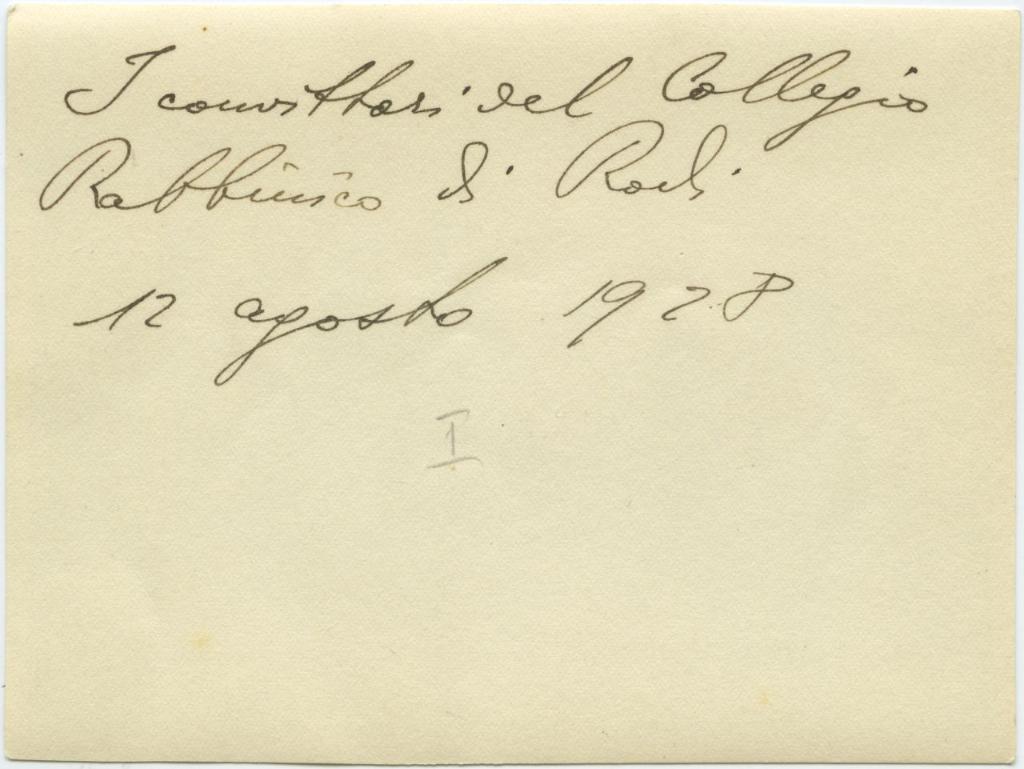 I convittori del Collegio
Rabbinico di Rodi
12 agosto 1928
I